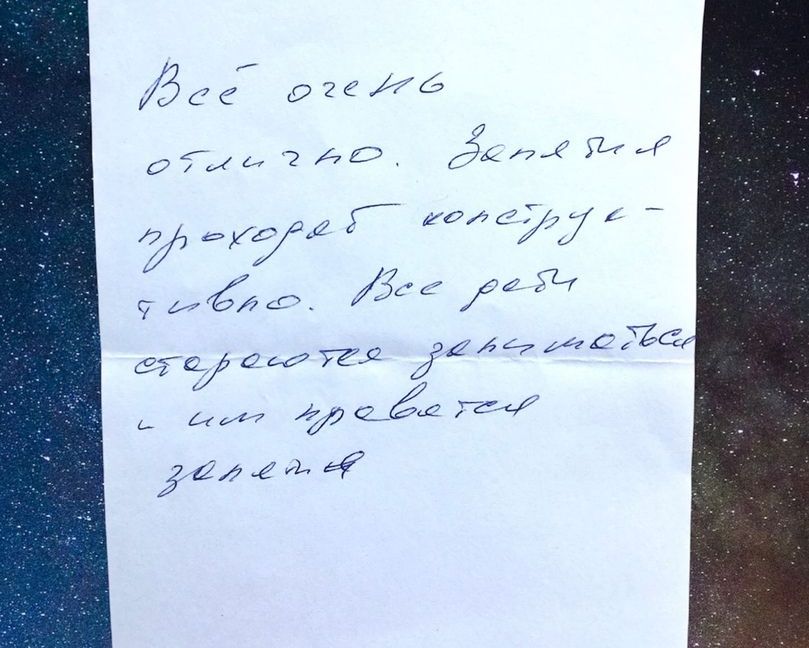 Всё очень
отлично. Занятия
проходят конструк-
тивно. Все дети
стараются заниматься
и им нравятся
занятия